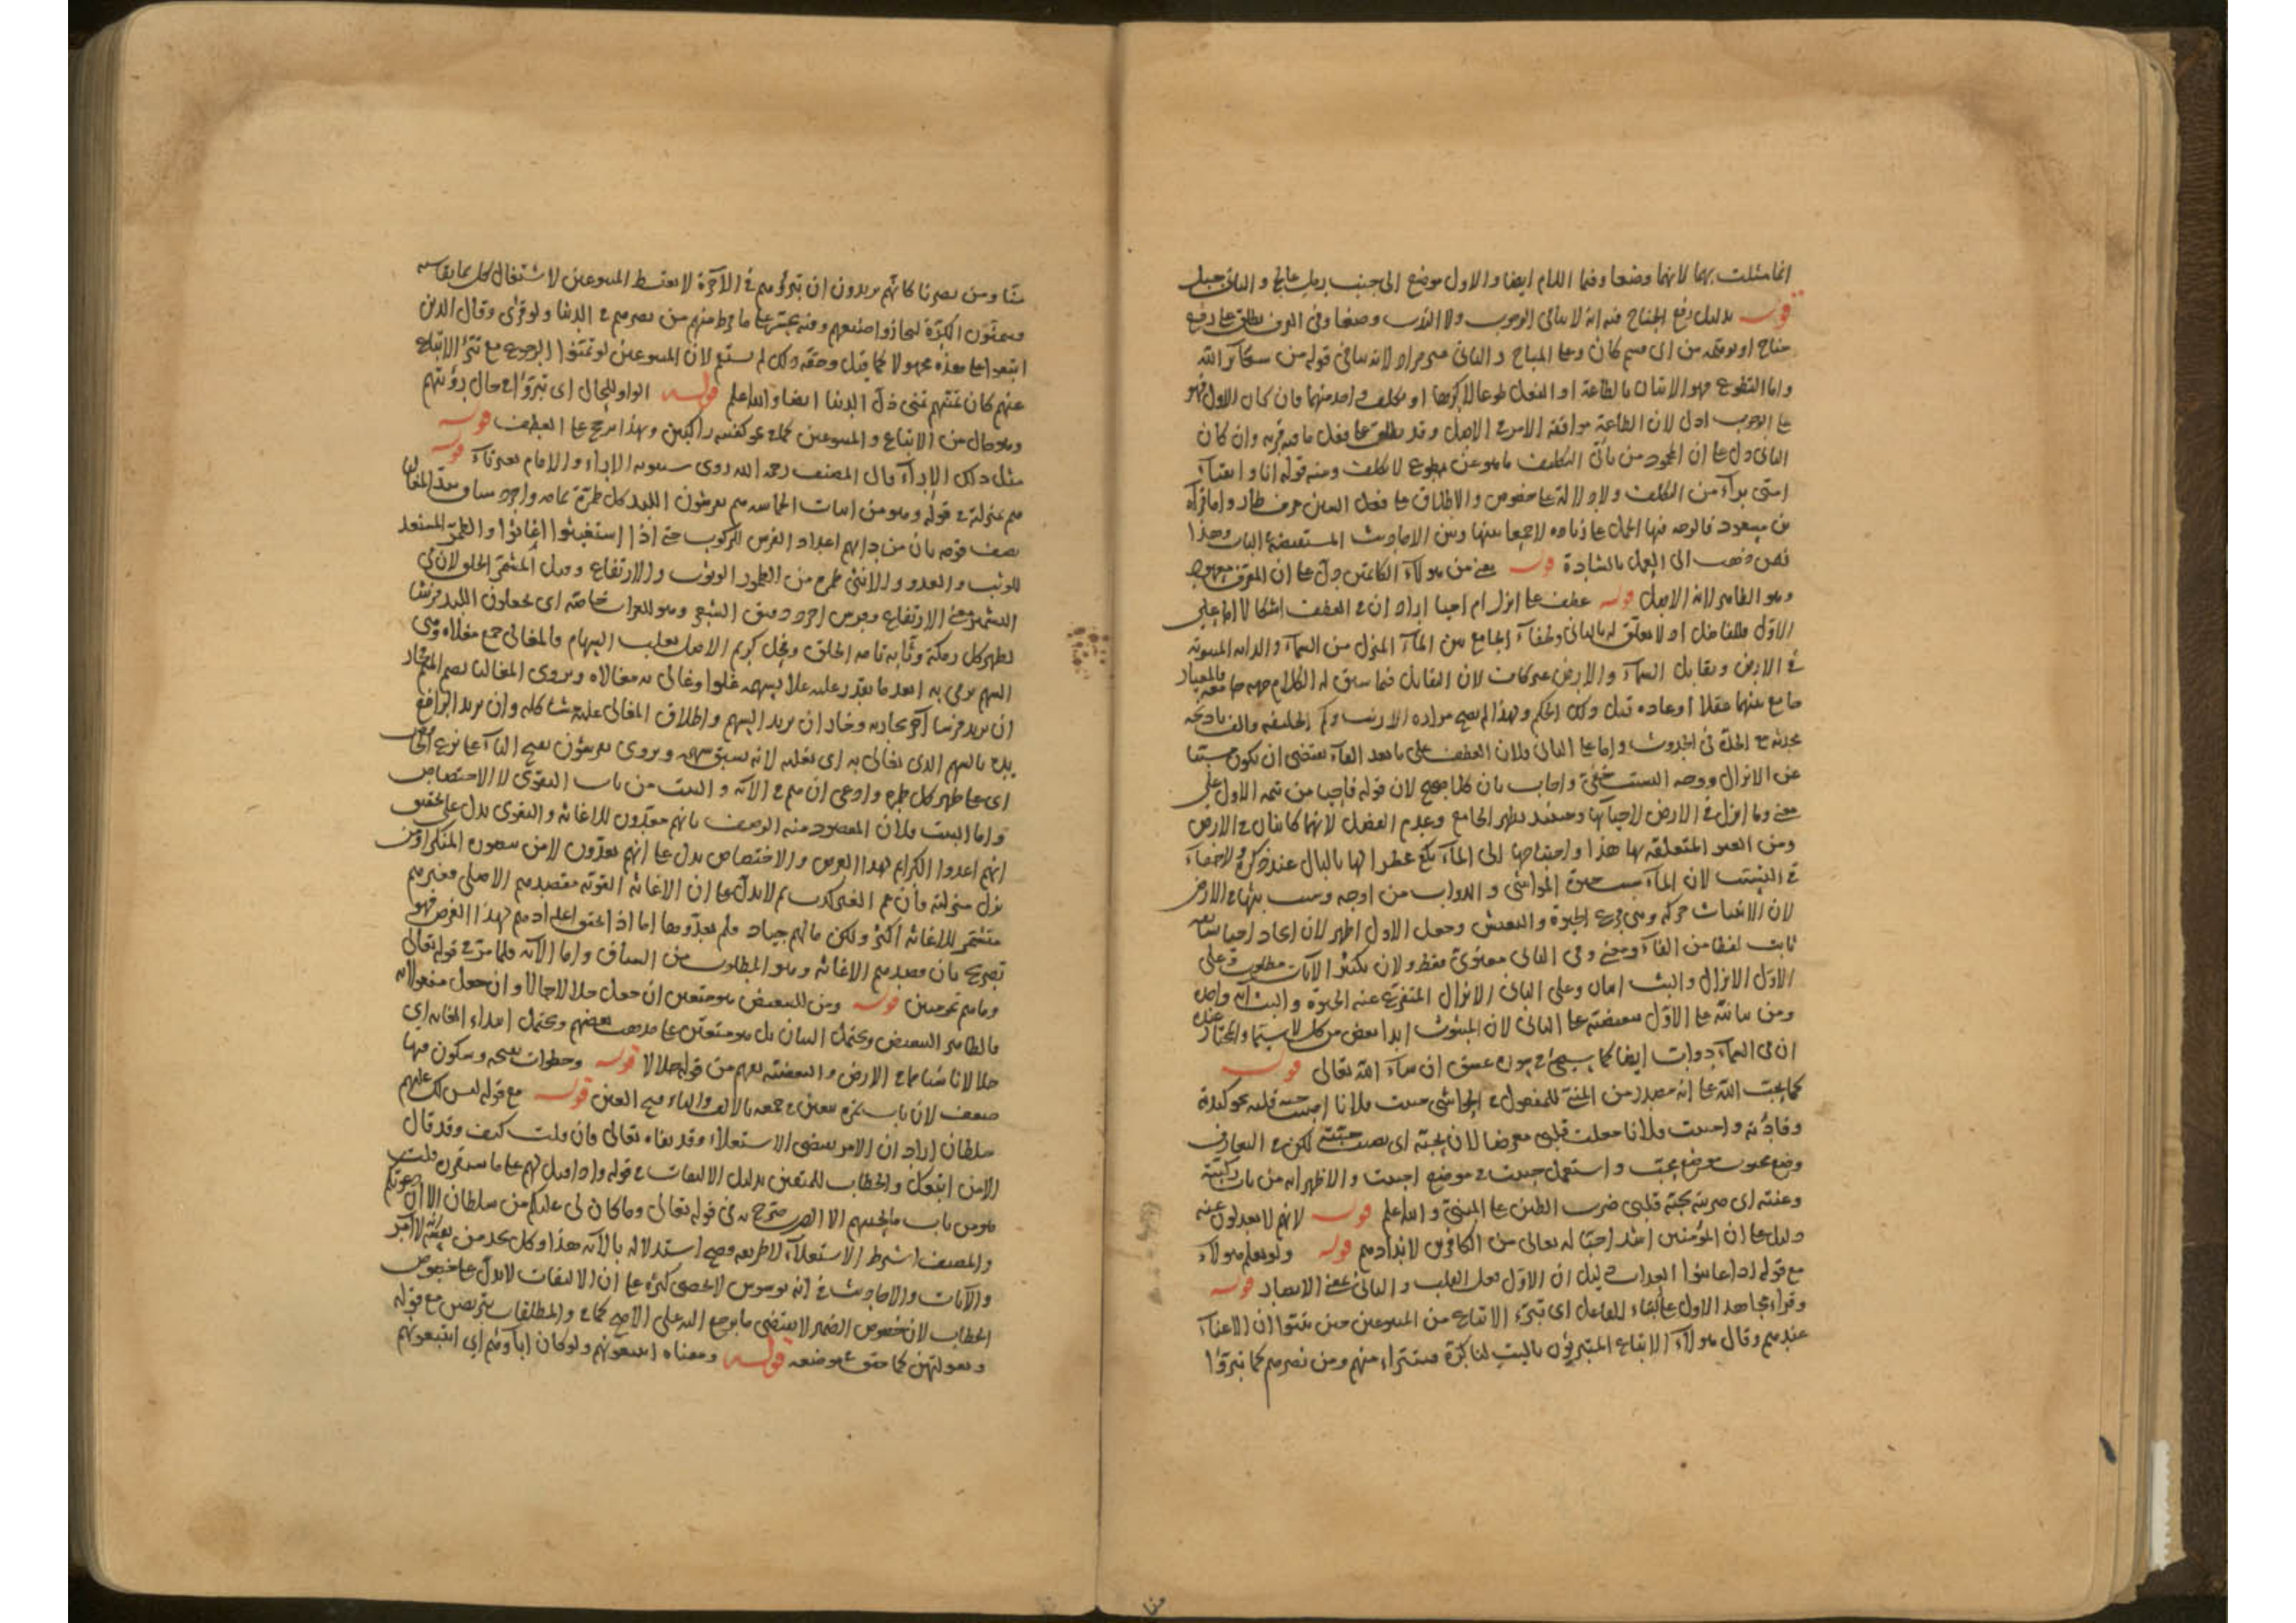 انما مثلت بهما لانهما وضعا وفيها اللام ايضا والاول موضع الى جنب
قوله بدليل رفع الجناح فيه انه لا ينافي الوجوب ولا الندب وضعا وفي العرف يطلق على رفع
جناح او توهمه من اى قسم كان وعلى المباح والثاني غير مراد لانه ينافي قوله من شعائر الله
واما التطوع فهو الاتيان بالطاعة او الفعل طوعا لا كرها او تكلف فان كان الاول فهو
على الوجوب ادل لان الطاعة موافقة الامر في الاصل وقد يطلق على فعل ما فيه قربة وان كان
الثاني دل على ان من التكليف ما هو عن تطوع لا تكلف ومنه قوله انا واتقياء
امتى برآء من التكلف ولا دلالة على خصوص والاطلاق على فعل العين عرف طار واما قراءة
بن مسعود فالوجه فيها الحمل على زيادة لا جمعا بينها وبين الاحاديث المستفيضة في الباب وهذا
فيمن ذهب الى العمل بالشاذة قوله يعني من هولاء الكاتمين دل على ان المعرف معهود
وهو الظاهر لانه الاصل قوله عطف على انزل ام احيا اراد ان في العطف اشكالا اما على
الاول فللفاصل اذ لا تعلق له بالثاني ولخفاء الجامع بين الماء المنزل من السماء والدابة المبثوثة
في الارض وتقابل السماء والارض غير كاف لان التقابل فيما سيق له الكلام
جامع بينهما عقلا او عادة قبل ذلك الحكم ولهذا لم يصح مرارة الارنب وكم الخليفة والف باذنجانة
محدثة مع الجملة في الحدوث واما على الثاني فلان العطف على ما بعد الفاء يقتضي ان يكون مسببا
عن الانزال ووجه السبب خفي واجاب بان كلا صحيح لان قوله فاحيا من تتمة الاول على
معنى وما انزل في الارض لاحيائها وحينئذ يظهر الجامع وعدم الفصل لانهما كائنان في الارض
ومن العبر المتعلقة بها هذا واحتياجها الى الماء
في السبب لان الماء سبب حيوة المواشي والدواب من اوجه وسبب بثها في الارض
لان الانبثاث حركة وهى فرع الحيوة والتعيش وجعل الاول اظهر لان
ثابت لفظا من الفاء ومعنى وفي الثاني معنوي فقط ولان تكثير الآيات مطلوب وعلى
الاول الانزال والبث ايتان وعلى الثاني الانزال المتفرع عنه الحيوة والبث اية واحدة
ومن بيانية على الاول تبعيضية على الثاني لان المبثوث ابدا بعض من كل
ان في السماء دواب ايضا كما سيجئ في سورة عسق ان شاء الله تعالى قوله
كما يحب الله على انه مصدر من المبني للمفعول في الحواشي حببت فلانا اصبت حبة قلبه نحو كبدته
وفأدته واحببت فلانا جعلت قلبي معرضا لان يحبه اى يصيب حبته لكن في التعارف
وضع محبوب موضع محب واستعمل حببت في موضع احببت والاظهر انه من باب ركبته
وعنته اى ضربته بحبة قلبي ضرب الطين على المبني والله اعلم قوله لانهم لا يعدلون عنه
دليل على ان المؤمنين اشد احبا له تعالى من الكافرين لاندادهم قوله ولو يعلم هولاء
مع قوله اذ اعاينوا العذاب دليل ان الاول فعل القلب والثاني بمعنى الابصار قوله
وقراءة مجاهد الاول على البناء للفاعل اى تبرى الاتباع من المتبوعين حين تيقنوا ان لا غناء
عندهم وقال هولاء الاتباع المتبرؤن ياليت لنا كرة فنتبراء منهم ومن نصرهم كما تبرؤا
منا ومن نصرنا كانهم يريدون ان تبرؤهم في الآخرة لا يغيظ المتبوعين لاشتغال كل بما يقاسيه
فيتمنون الكرة ليجازوا صنيعهم وفيه تحسر على ما فرط منهم من نصرهم في الدنيا ولو قرئ وقال الذين
اتبعوا على هذه مجهولا كما قيل وحققه ذلك لم يستقم لان المتبوعين لو تمنوا الرجوع مع تبرؤ الاتباع
عنهم كان تمنيهم تمنى ذل الدنيا ايضا والله اعلم قوله الواو للحال اى تبرؤا في حال رؤيتهم
وهو حال من الاتباع والمتبوعين كما في نحو لقيته راكبين وهذا مرجح على العطف قوله
مثل ذلك الاراء قال المصنف رحمه الله روى سيبويه الاراء والاقام بغير تاء قوله
هم بمنزلة في قوله وهو من ابيات الحماسة هم يفرشون اللبد كل طمرة
يصف قومه بان من دابهم اعداد الفرس للركوب حتى اذا استغيثوا اغاثوا والطمر المستعد
للوثب والعدو والانثى طمرة من الطمور الوثوب والارتفاع وقيل المشمر الخلق لان في
التشمر معنى الارتفاع وفرس اجرد دقيق الشعر وهو للعراب خاصة اى يجعلون اللبد فرشا
لظهر كل رمكة وثابة تامة الخلق وفحل كريم الاصل يغلب السهام والمغالى جمع مغلاة وهى
السهم يرمى به ابعد ما يقدر عليه غلا بسهمه غلوا وغالى به مغالاة ويروى المغاليا بضم الميم
ان يريد فرسا آخر يجاريه وجاز ان يريد السهم واطلاق المغالى عليه مشاكلة وان يريد الرافع
يده بالسهم الذى يغالى به اى يغلبه لانه يسبق سهمه ويروى يفرشون بفتح الياء على نزع الخافض
اى على ظهر كل طمرة وادعى ان هم في الآية والبيت من باب التقوى لا الاختصاص
واما البيت فلان المقصود منه الوصف بانهم معدون للاغاثة والتقوى يدل على تحقيق
انهم اعدوا الكرائم لهذا الغرض والاختصاص يدل على انهم يعدون لا من
نزل منزلته فان عم الغير كذب ثم لا يدل على ان الاغاثة القوية مقصدهم الاصلى فغيرهم
متشمر للاغاثة اكثر ولكن مالهم جياد فلم يعدوها اما اذا حقق اعدادهم لهذا الغرض فهو
تصريح بان قصدهم الاغاثة وهو المطلوب من السياق واما الآية فلما مر في قوله تعالى
وما هم بمؤمنين قوله ومن للتبعيض هو متعين ان جعل حلالا حالا وان جعل مفعولا به
فالظاهر التبعيض ويحتمل البيان بل هو متعين على مذهب بعضهم ويحتمل ابتداء الغاية اى
حلالا ناشئا مما في الارض والتبعيضية يفهم من قوله حلالا قوله وخطوات بضمة وسكون فيها
ضعف لان باب تمرة يتعين في جمعه بالالف والتاء فتح العين قوله مع قوله ليس لك عليهم
سلطان اراد ان الامر يقتضى الاستعلاء وقد نفاه تعالى فان قلت كيف وقد قال
الا من اتبعك والخطاب للمتقين بدليل الالتفات في قوله واذا قيل لهم على ما سنقرره قلت
هو من باب ما يحييهم الا الصبر صرح به في قوله تعالى وما كان لى عليكم من سلطان الا ان دعوتكم
والمصنف اشترط الاستعلاء لا طريقه وصح استدلاله بالآية هذا وكل يجد من نفسه انه لا آمر
والآيات والاحاديث في انه يوسوس لا تحصى كثرة على ان الالتفات لا يدل على خصوص
الخطاب لان خصوص الضمير لا يقتضى ما يرجع اليه على الاصح كما في والمطلقات يتربصن مع قوله
وبعولتهن كما حقق في موضعه قوله ومعناه ايتبعونهم ولو كان آباؤهم اى ايتبعونهم